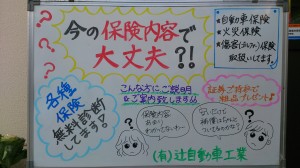 今の保険内容で
大丈夫?!
★自動車保険
★火災保険
★傷害(ケガ)保険
取扱いしてます。
各種
保険
無料診断
してます!
こんな方にご説明
&ご案内致します
証券ご持参で
粗品プレゼント!
保険内容
(有)辻自動車工業